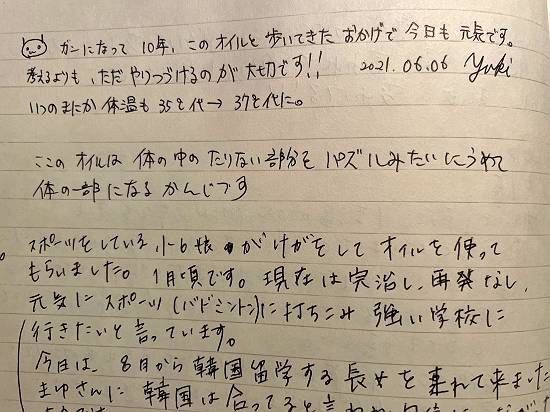 ガンになって 10年、このオイルと歩いてきた おかげで 今日も 元気です。
考えるよりも、ただ やりつづけるのが 大切です!! 2021.06.06 Yuki
いつのまにか 体温も 35℃代→37℃代に。
ここの オイルは 体の中の たりない部分を パズルみたいにうめて
体の一部になる かんじです
スポーツをしている 小6 娘 がけがをして オイルを使って
もらいました。 1月頃です。 現在は完治し、再発なし、
元気に スポーツ(バドミントン)に打ちこみ 強い学校に
行きたいと言っています。
今日は、8日から韓国留学する長女を連れて来ました
まゆさんに 韓国は合ってると言われ